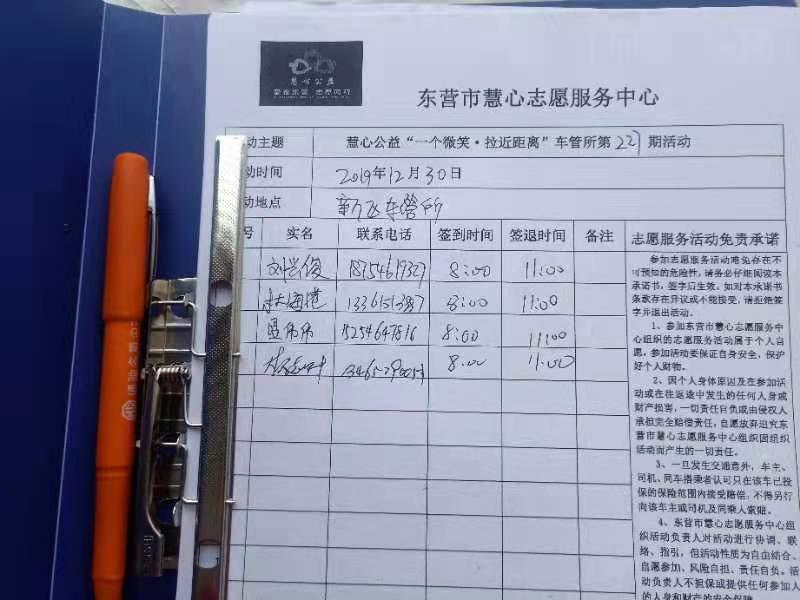 慧心公益
东营市慧心志愿服务中心
动主题 慧心公益“一个微笑·拉近距离”车管所第227期活动
动时间 2019年12月30日
动地点
号 实名 联系电话 签到时间 签退时间 备注 志愿服务活动免责承诺
8:00 11:00
8:00 11:00
8:00 11:00
8:00 11:00
参加志愿服务活动难免存在不
可预知的危险性，请务必仔细阅读本
承诺书，签字后生效。如对本承诺书
条款存在异议或不能接受，请拒绝签
字并退出活动。
1、参加东营市慧心志愿服务中
心组织的志愿服务活动属于个人自
愿。参加活动要保证自身安全，保护
好个人财物。
2、因个人身体原因及在参加活
动或在往返途中发生的任何人身或
财产损害，一切责任自负或由侵权人
承担完全赔偿责任，自愿放弃追究东
营市慧心志愿服务中心组织因组织
活动而产生的一切责任。
3、一旦发生交通意外，车主、
司机、同车搭乘者认可只在该车已投
保的保险范围内接受赔偿，不得另行
向该车主或司机及同乘人索赔。
4、东营市慧心志愿服务中心组
织活动负责人对活动进行协调、联
络、指引，但活动性质为自由结合、
自愿参加、风险自担、责任自负。活
动负责人不担保或提供任何参加人
的人身和财产的安全保障